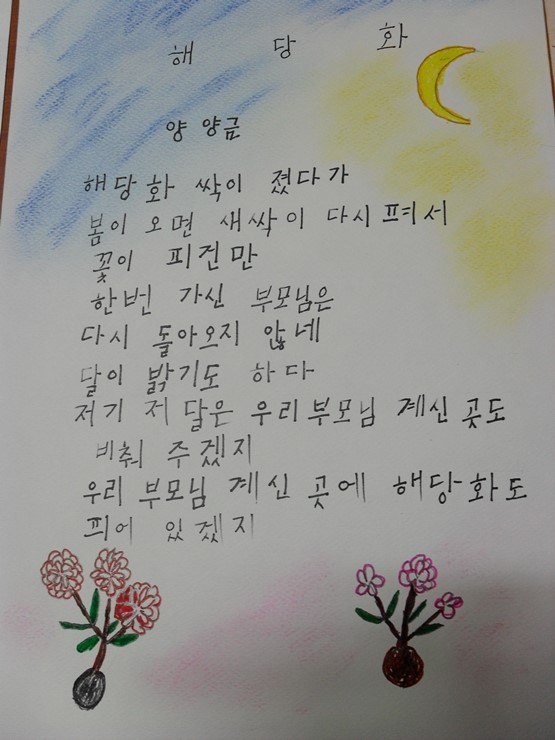 해 당 화
양 양금
해당화 싹이 졌다가
봄이 오면 새싹이 다시 펴서
꽃이 피건만
한번 가신 부모님은
다시 돌아오지 않네
달이 밝기도 하다
저기 저 달은 우리부모님 계신 곳도
비춰 주겠지
우리 부모님 계신 곳에 해당화도
픠어 있겠지